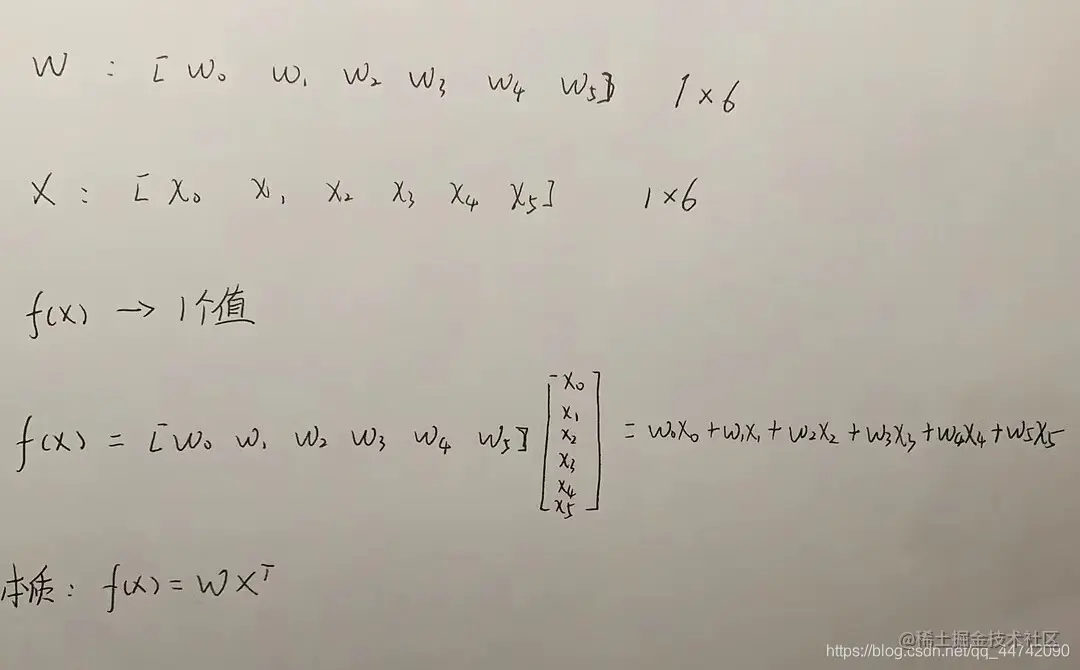 W : [ W₀ W₁ W₂ W₃ W₄ W₅] 1×6
X : [ X₀ X₁ X₂ X₃ X₄ X₅] 1×6
f(X) → 1个值
f(X) = [W₀ W₁ W₂ W₃ W₄ W₅] [X₀ X₁ X₂ X₃ X₄ X₅] = W₀X₀+W₁X₁+W₂X₂+W₃X₃+W₄X₄+W₅X₅
本质: f(X)=WXᵀ
@稀土掘金技术社区
https://blog.csdn.net/qq_44742090